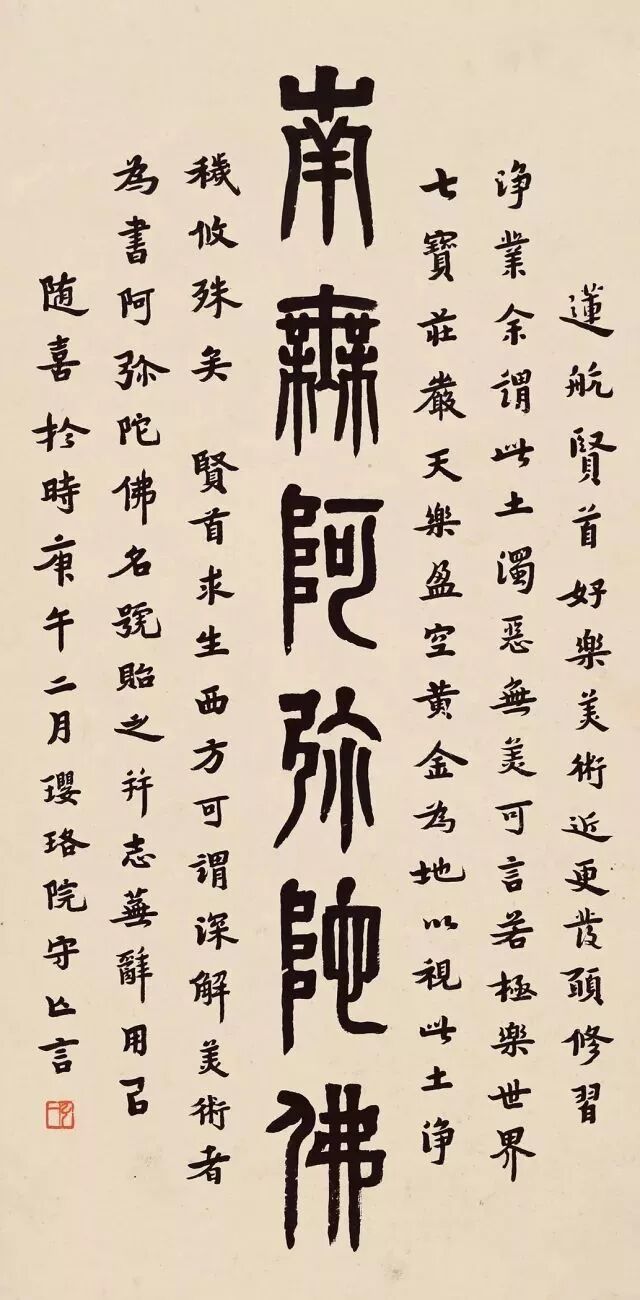 蓮航賢首好樂美術近更發願修習
淨業余謂此土濁惡無美可言若極樂世界
七寶莊嚴天樂盈空黄金為地以視此土淨
南無阿弥陀佛
穢攸殊矣 賢首求生西方可謂深解美術者
為書阿弥陀佛名號貽之并志蕪辭用㠯
随喜於時庚午二月瓔珞院守亾言